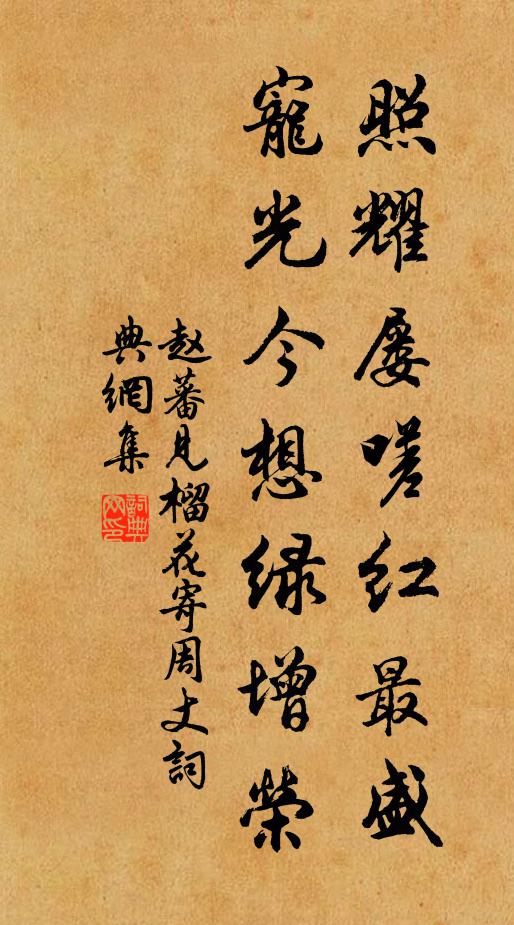 照耀屡嗟红最盛
寵光今想绿增榮
赵蕃見榴花寄周丈詞
典網集
詞典網印